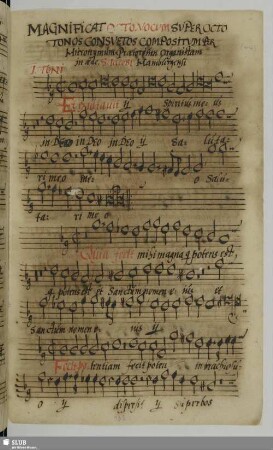 MAGNIFICAT OCTO VOCUM SUPER OCTO
TONOS CONSVETOS COMPOSITVM PER
Hieronymum Praetorium Organistam
in aede S. Jacobi Hamburgensi
I. TONI
Et exultavit ij Spiritus me us
in Deo in Deo in Deo ij Sa luta
ri meo me o Salu
ta ri me o
Quia fecit mihi magna q potens est,
q potens est et Sanctum nomen e ius et
Sanctum nomen e ius ij
Fecit po tentiam fecit poten in brachio su
o ij dispersit ij superbos
SLUB